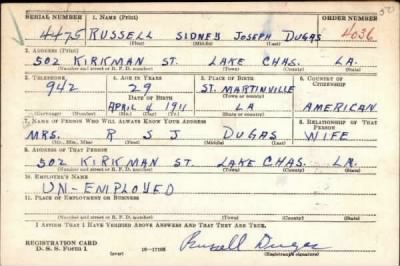 SERIAL NUMBER 1. NAME (Print) ORDER NUMBER
4475 RUSSELL SIDNEY JOSEPH DUGAS 4036
(First) (Middle) (Last)
2. ADDRESS (Print)
502 KIRKMAN ST. LAKE CHAS. LA.
(Number and street or R. F. D. number) (Town) (County) (State)
3. TELEPHONE 4. AGE IN YEARS 5. PLACE OF BIRTH 6. COUNTRY OF CITIZENSHIP
942 29 ST. MARTINVILLE
(Town or county)
DATE OF BIRTH
APRIL 4 1911 LA AMERICAN
(Exchange) (Number) (Mo.) (Day) (Yr.) (State or country)
7. NAME OF PERSON WHO WILL ALWAYS KNOW YOUR ADDRESS 8. RELATIONSHIP OF THAT PERSON
MRS. R S J DUGAS WIFE
(Mr., Mrs., Miss) (First) (Middle) (Last)
9. ADDRESS OF THAT PERSON
502 KIRKMAN ST. LAKE CHAS. LA.
(Number and street or R. F. D. number) (Town) (County) (State)
10. EMPLOYER'S NAME
UN-EMPLOYED
11. PLACE OF EMPLOYMENT OR BUSINESS
(Number and street or R. F. D. number) (Town) (County) (State)
I AFFIRM THAT I HAVE VERIFIED ABOVE ANSWERS AND THAT THEY ARE TRUE.
REGISTRATION CARD
D. S. S. Form 1 (over) Russell Dugas
(Registrant's signature)